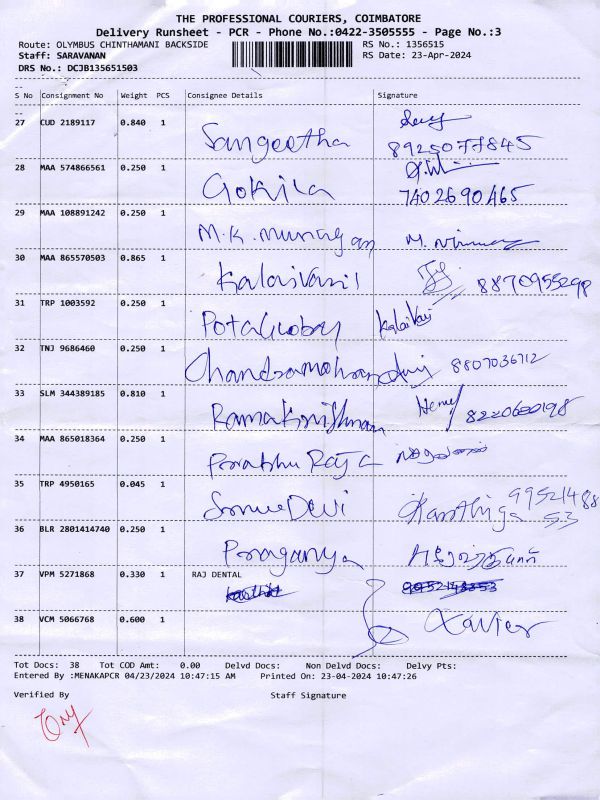 THE PROFESSIONAL COURIERS, COIMBATORE
Delivery Runsheet - PCR - Phone No.:0422-3505555 - Page No.:3
Route: OLYMBUS CHINTHAMANI BACKSIDE RS No.: 1356515
Staff: SARAVANAN RS Date: 23-Apr-2024
DRS No.: DCJB135651503
S No Consignment No Weight PCS Consignee Details Signature
27 CUD 2189117 0.840 1 Sangeetha 8925077845
28 MAA 574866561 0.250 1 Gokila 7402690465
29 MAA 108891242 0.250 1 M.K.Murugan
30 MAA 865570503 0.865 1 Kalaivani 8870955298
31 TRP 1003592 0.250 1 Kalaivani
32 TNJ 9686460 0.250 1 Chandramohan 8807036712
33 SLM 344389185 0.810 1 Ramakrishnan Henry 8220600198
34 MAA 865018364 0.250 1 Prabhu Raja
35 TRP 4950165 0.045 1 Devi Karthiga 9952148853
36 BLR 2801414740 0.250 1 Praganya
37 VPM 5271868 0.330 1 RAJ DENTAL
38 VCM 5066768 0.600 1 Xavier
Tot Docs: 38 Tot COD Amt: 0.00 Delvd Docs: Non Delvd Docs: Delvy Pts:
Entered By :MENAKAPCR 04/23/2024 10:47:15 AM Printed On: 23-04-2024 10:47:26
Verified By Staff Signature